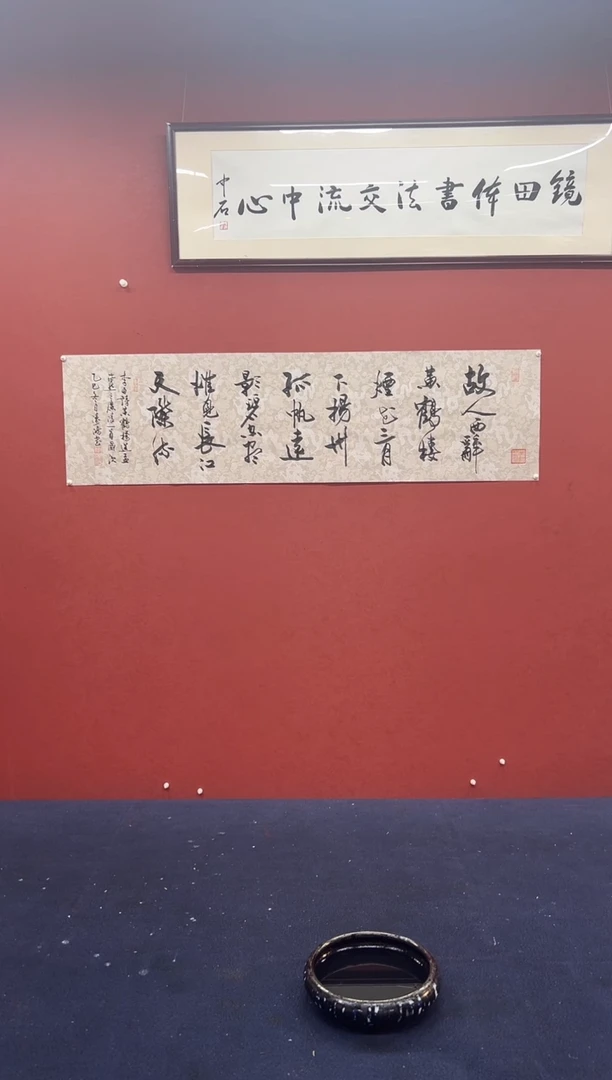 鏡田体書法交流中心
中石
故人西辭
黃鶴樓
煙花三月
下揚州
孤帆遠
影碧空盡
惟見長江
天際流
李白詩黃鶴樓送孟
浩然之廣陵一首
乙巳冬月